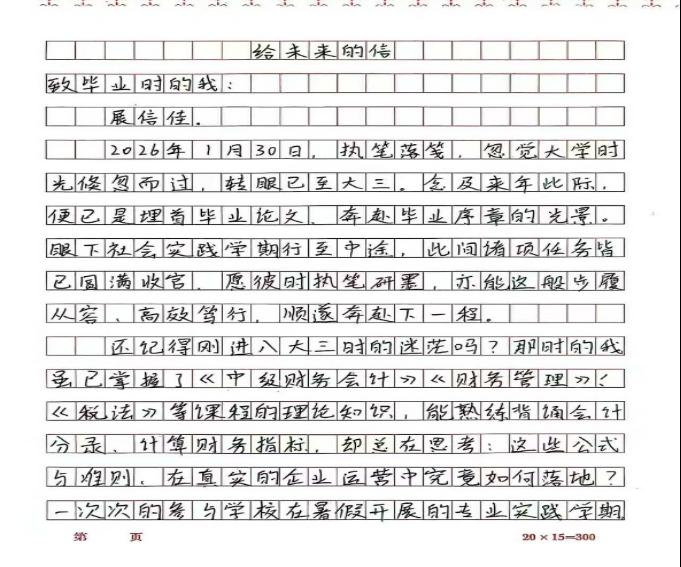 给未来的信
致毕业时的我:
展信佳。
2026年1月30日,执笔落笺,忽觉大学时
光倏忽而过,转眼已至大三。念及来年此际,
便已是埋首毕业论文、奔赴毕业序章的光景。
眼下社会实践学期行至中途,此间诸项任务皆
已圆满收官,愿彼时执笔研墨,亦能这般步履
从容、高效笃行,顺遂奔赴下一程。
还记得刚进入大三时的迷茫吗?那时的我
虽已掌握了《中级财务会计》《财务管理》、
《税法》等课程的理论知识,能熟练背诵会计
分录、计算财务指标,却总在思考:这些公式
与准则,在真实的企业运营中究竟如何落地?
一次次的参与学校在暑假开展的专业实践学期
第 页 20×15=300